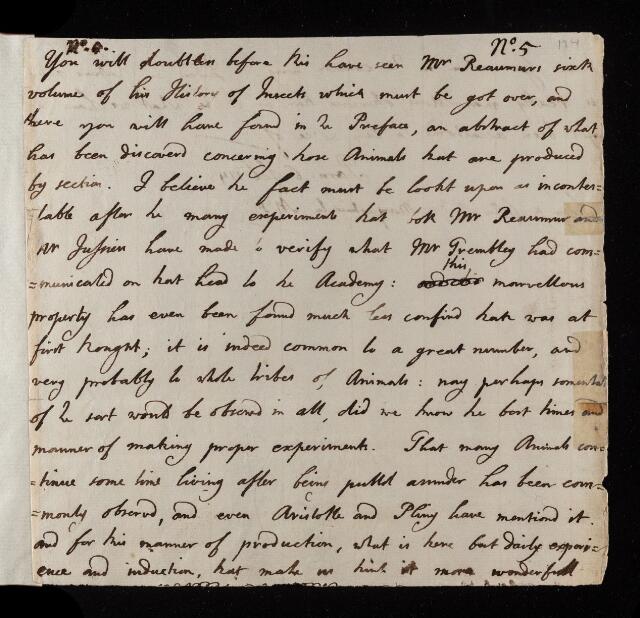 No. 6. No. 5 124
You will doubtless before this have seen Mr Reaumurs sixth
volume of his History of Insects which must be got over, and
there you will have found in the Preface, an abstract of what
has been discoverd concerning those Animals that are produced
by section. I believe the fact must be lookt upon as incontes=
=table after the many experiments that both Mr Reaumur and
Mr Jussieu have made to verify what Mr Trembley had com=
=municated on that head to the Academy: this marvellous
property has even been found much less confind than was at
first thought; it is indeed common to a great number, and
very probably to whole tribes of Animals: nay perhaps somewhat
of the sort would be observd in all, did we know the best times and
manner of making proper experiments. That many Animals con=
=tinue some time living after being pulld asunder has been com=
=monly observd, and even Aristotle and Pliny have mentiond it.
and for this manner of production, what is here but daily experi=
ence and induction, that make us think it more wonderfull